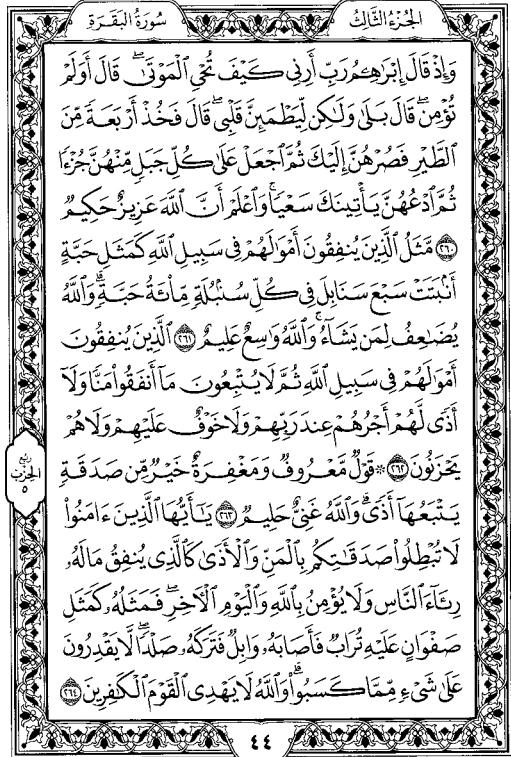 الجزء الثالث
سورة البقرة
وَإِذْ قَالَ إِبْرَٰهِـۧمُ رَبِّ أَرِنِى كَيْفَ تُحْىِ ٱلْمَوْتَىٰ ۖ قَالَ أَوَلَمْ
تُؤْمِن ۖ قَالَ بَلَىٰ وَلَٰكِن لِّيَطْمَئِنَّ قَلْبِى ۖ قَالَ فَخُذْ أَرْبَعَةً مِّنَ
ٱلطَّيْرِ فَصُرْهُنَّ إِلَيْكَ ثُمَّ ٱجْعَلْ عَلَىٰ كُلِّ جَبَلٍ مِّنْهُنَّ جُزْءًا
ثُمَّ ٱدْعُهُنَّ يَأْتِينَكَ سَعْيًا ۚ وَٱعْلَمْ أَنَّ ٱللَّهَ عَزِيزٌ حَكِيمٌ
٢٦٠ مَّثَلُ ٱلَّذِينَ يُنفِقُونَ أَمْوَٰلَهُمْ فِى سَبِيلِ ٱللَّهِ كَمَثَلِ حَبَّةٍ
أَنۢبَتَتْ سَبْعَ سَنَابِلَ فِى كُلِّ سُنۢبُلَةٍ مِّا۟ئَةُ حَبَّةٍ ۗ وَٱللَّهُ
يُضَٰعِفُ لِمَن يَشَآءُ ۗ وَٱللَّهُ وَٰسِعٌ عَلِيمٌ ٢٦١ ٱلَّذِينَ يُنفِقُونَ
أَمْوَٰلَهُمْ فِى سَبِيلِ ٱللَّهِ ثُمَّ لَا يُتْبِعُونَ مَآ أَنفَقُوا۟ مَنًّا وَلَآ
أَذًى لَّهُمْ أَجْرُهُمْ عِندَ رَبِّهِمْ وَلَا خَوْفٌ عَلَيْهِمْ وَلَا هُمْ
يَحْزَنُونَ ٢٦٢ ۞ قَوْلٌ مَّعْرُوفٌ وَمَغْفِرَةٌ خَيْرٌ مِّن صَدَقَةٍ
يَتْبَعُهَآ أَذًى ۗ وَٱللَّهُ غَنِىٌّ حَلِيمٌ ٢٦٣ يَٰٓأَيُّهَا ٱلَّذِينَ ءَامَنُوا۟
لَا تُبْطِلُوا۟ صَدَقَٰتِكُم بِٱلْمَنِّ وَٱلْأَذَىٰ كَٱلَّذِى يُنفِقُ مَالَهُۥ
رِئَآءَ ٱلنَّاسِ وَلَا يُؤْمِنُ بِٱللَّهِ وَٱلْيَوْمِ ٱلْءَاخِرِ ۖ فَمَثَلُهُۥ كَمَثَلِ
صَفْوَانٍ عَلَيْهِ تُرَابٌ فَأَصَابَهُۥ وَابِلٌ فَتَرَكَهُۥ صَلْدًا ۖ لَّا يَقْدِرُونَ
عَلَىٰ شَىْءٍ مِّمَّا كَسَبُوا۟ ۗ وَٱللَّهُ لَا يَهْدِى ٱلْقَوْمَ ٱلْكَٰفِرِينَ ٢٦٤
ربع
الحزب
٥
٤٤